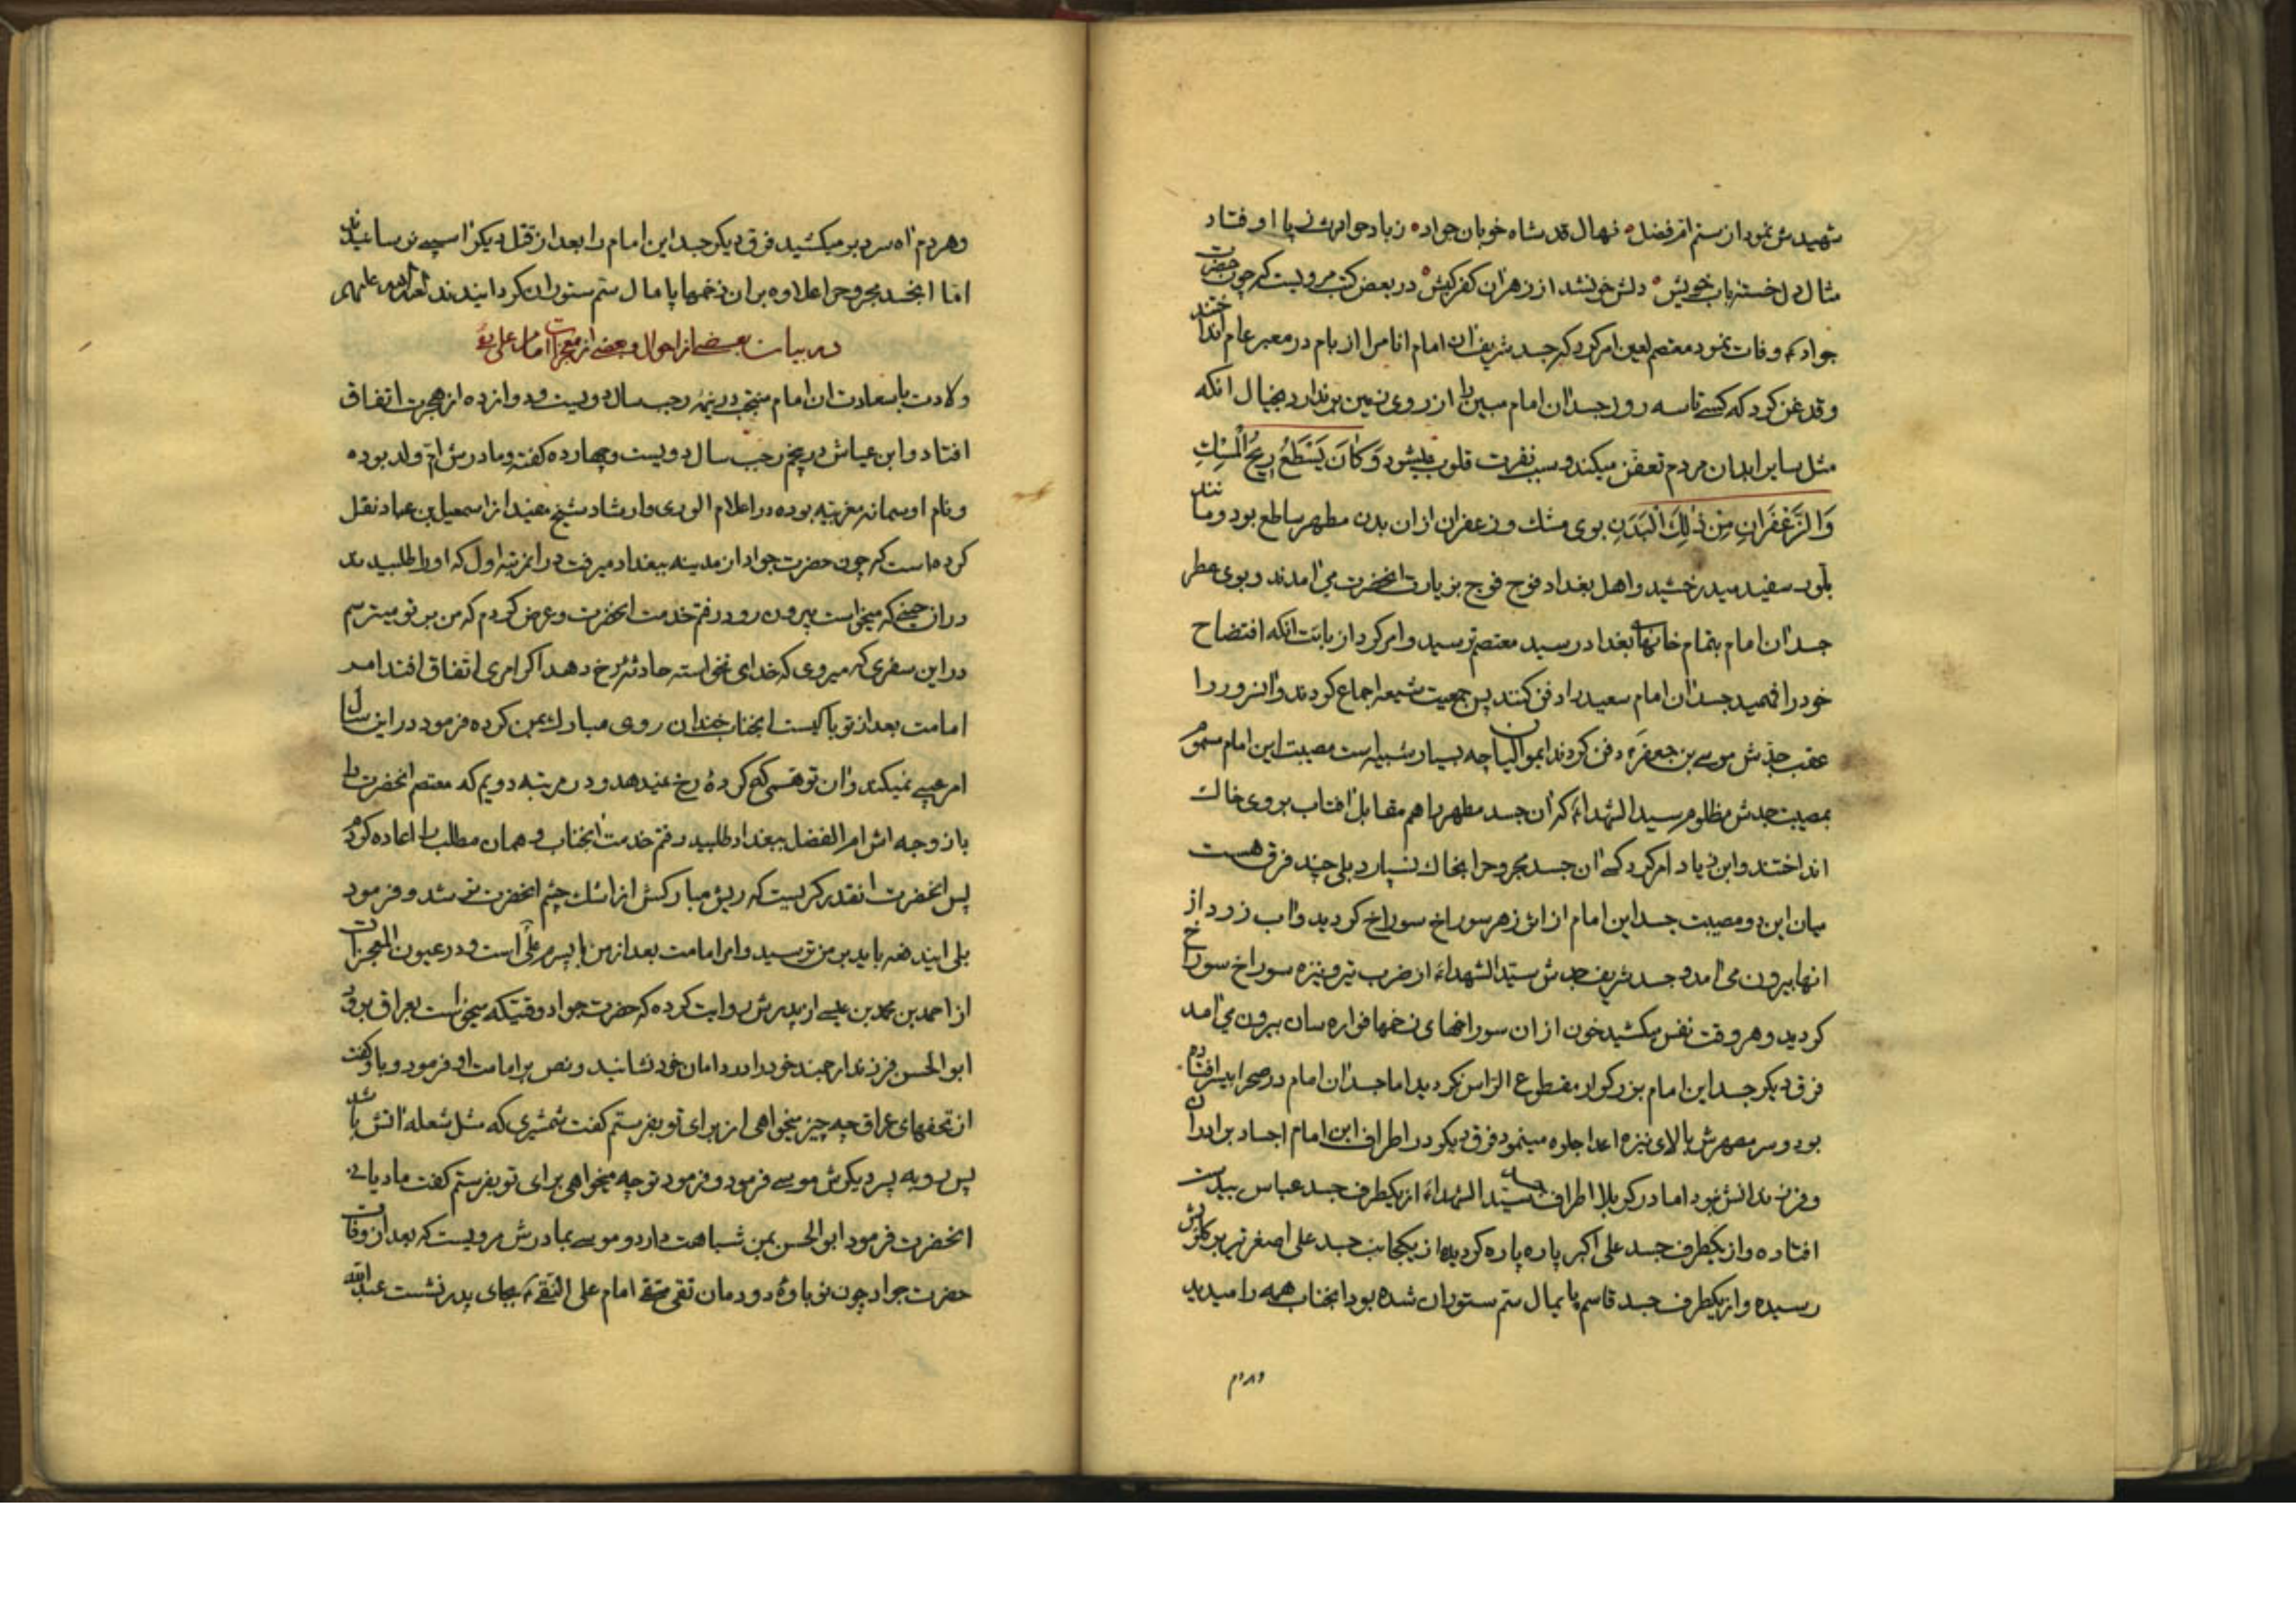 شهیدش نمود از ستم ام فضل نهال قد شاه خوبان جواد ز باد حوادث ز پا اوفتاد
مثال دل خسته باب خویش دلش خون شد از زهر آن کفر کیش در بعض کتب مرویست که چون حضرت
جواد ع وفات نمود معتصم لعین امر کرد که جسد شریف آن امام انام را از بام در معبر عام انداختند
و قدغن کرد که کسی تا سه روز جسد آن امام مبین را از روی زمین برندارد بخیال آنکه
مثل سایر ابدان مردم تعفن میکند و سبب نفرت قلوب میشود وَ کَانَ یَسْطَعُ رِیحُ الْمِسْكِ
وَ الزَّعْفَرَانِ مِنْ ذٰلِكَ الْبَدَنِ بوی مشك و زعفران از آن بدن مطهر ساطع بود و مانند
بلور سفید میدرخشید و اهل بغداد فوج فوج بزیارت آنحضرت می آمدند و بوی عطر
جسد آن امام بتمام خانهای بغداد رسید معتصم ترسید و امر کرد از بابت آنکه افتضاح
خود را فهمید جسد آن امام سعید را دفن کنند پس جمعیت شیعه اجماع کردند و آن سرور را
عقب جدش موسی بن جعفر ع دفن کردند ایموالیان چه بسیار شبیه است مصیبت این امام مسموم
بمصیبت جدش مظلوم سید الشهداء که آن جسد مطهر را هم مقابل آفتاب بروی خاك
انداختند و ابن زیاد امر کرد که آن جسد مجروح را بخاك نسپارد بلی چند فرق هست
میان این دو مصیبت جسد این امام از اثر زهر سوراخ سوراخ گردید و آب زرد از
آنها بیرون می آمد و جسد شریف جدش سید الشهداء از ضرب تیر و نیزه سوراخ سوراخ
گردید و هر وقت نفس میکشید خون از آن سوراخهای زخمها فواره سان بیرون می آمد
فرق دیگر جسد این امام بزرگوار مقطوع الراس نگردید اما جسد آن امام در صحرا بیسر افتاده
بود و سر مطهرش بالای نیزه اعدا جلوه مینمود فرق دیگر در اطراف این امام اجساد برادران
و فرزندانش نبود اما در کربلا اطراف جسد سید الشهداء از یکطرف جسد عباس بیدست
افتاده و از یکطرف جسد علی اکبر پاره پاره گردیده از یکجانب جسد علی اصغر تیر بر گلویش
رسیده و از یکطرف جسد قاسم پایمال ستم ستوران شده بود آنجناب همه را میدید
و هر دم
و هر دم آه سرد بر میکشید فرق دیگر جسد این امام را بعد از قتل دیگر آسیبی نرسانیدند
اما آنجسد مجروح را علاوه بر آن زخمها پامال ستم ستوران گردانیدند
در بیان بعضی از احوال و بعضی از معجزات امام علی نقی
ولادت با سعادت آن امام منتجب در نیمه رجب سال دویست و دوازده از هجرت اتفاق
افتاد و ابن عیاش در پنجم رجب سال دویست و چهارده گفته و مادرش ام ولد بوده
و نام او سمانه مغربیه بوده در اعلام الوری و ارشاد شیخ مفید از اسمعیل بن عباد نقل
کرده است که چون حضرت جواد از مدینه ببغداد میرفت در آنمرتبه اول که او را طلبیدند
در آن حینی که میخواست بیرون رود رفتم خدمت آنحضرت و عرض کردم که من بر تو میترسم
در این سفری که میروی که خدای نخواسته حادثه رخ دهد اگر امری اتفاق افتد امر
امامت بعد از تو با کیست آنجناب خندان روی مبارك بمن کرده فرمود در این سال
امر عیبی نمیکند و آن توهمی که کرده رخ نمیدهد و در مرتبه دویم که معتصم آنحضرت را
با زوجه اش ام الفضل ببغداد طلبید رفتم خدمت آنجناب و همان مطلب را اعاده کردم
پس آنحضرت آنقدر گریست که ریش مبارکش از اشك چشم آنحضرت تر شد و فرمود
بلی ایندفعه باید بر من ترسید و امر امامت بعد از من با پسرم علی است و در عیون المعجزات
از احمد بن محمد بن عیسی از پدرش روایت کرده که حضرت جواد وقتیکه میخواست بعراق برود
ابو الحسن فرزند ارجمند خود را در دامان خود نشانید و نص بر امامت او فرمود و باو گفت
از تحفهای عراق چه چیز میخواهی از برای تو بفرستم گفت شمشیری که مثل شعله آتش باشد
پس رو به پسر دیگرش موسی فرمود و فرمود تو چه میخواهی برای تو بفرستم گفت مادیانی
آنحضرت فرمود ابو الحسن بمن شباهت دارد و موسی بمادرش مرویست که بعد از وفات
حضرت جواد چون نوباوۀ دودمان تقی متقی امام علی النقی ع بجای پدر نشست عبدالله